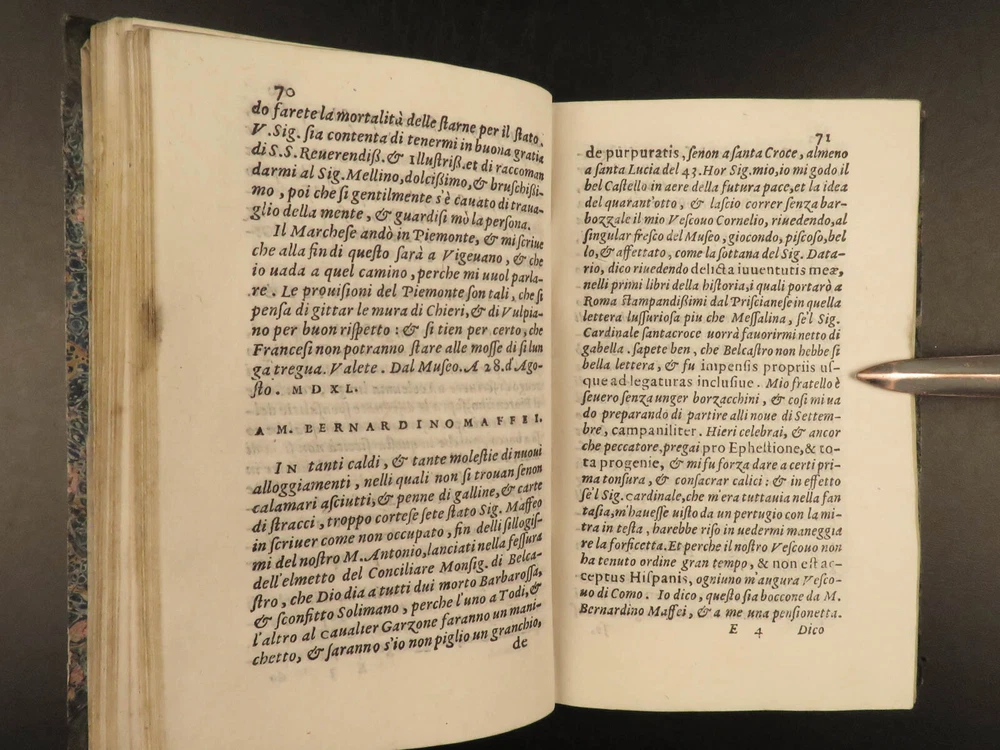 70
do farete la mortalità delle ſtarne per il ſtato.
V. Sig. ſia contenta di tenermi in buona gratia
di S.S. Reuerendiß. & Illuſtriß. et di raccoman
darmi al Sig. Mellino, dolcißimo, & bruſchißi-
mo, poi che ſi gentilmente s'è cauato di traua-
glio della mente, & guardiſi mò la perſona.
Il Marcheſe andò in Piemonte, & mi ſcriue
che alla fin di queſto ſarà a Vigeuano, & che
io uada a quel camino, perche mi uuol parla-
re. Le prouiſioni del Piemonte ſon tali, che ſi
penſa di gittar le mura di Chieri, & di Vulpia-
no per buon riſpetto: & ſi tien per certo, che
Franceſi non potranno ſtare alle moſſe di ſi lun
ga tregua. Valete. Dal Muſeo. A 28. d'Ago-
ſto. M D XL.
A M. BERNARDINO MAFFEI.
IN tanti caldi, & tante moleſtie di nuoui
alloggiamenti, nelli quali non ſi trouan ſenon
calamari aſciutti, & penne di galline, & carte
di ſtracci, troppo corteſe ſete ſtato Sig. Maffeo
in ſcriuer come non occupato, fin delli ſillogiſ-
mi del noſtro M. Antonio, lanciati nella feſſura
dell'elmetto del Conciliare Monſig. di Belca-
ſtro, che Dio dia a tutti dui morto Barbaroſſa,
& ſconfitto Solimano, perche l'uno a Todi, &
l'altro al caualier Garzone faranno un mani-
chetto, & ſaranno s'io non piglio un granchio,
de
71
de purpuratis, ſenon a ſanta Croce, almeno
a ſanta Lucia del 43. Hor Sig. mio, io mi godo il
bel Caſtello in aere della futura pace, et la idea
del quarant'otto, & laſcio correr ſenza bar-
bozzale il mio Veſcouo Cornelio, riuedendo, al
ſingular freſco del Muſeo, giocondo, piſcoſo, bel
lo, & affettato, come la ſottana del Sig. Data-
rio, dico riuedendo delicta iuuentutis meæ,
nelli primi libri della hiſtoria, i quali portarò a
Roma ſtampandißimi dal Priſcianeſe in quella
lettera luſſurioſa piu che Meſſalina, ſe'l Sig.
Cardinale ſantacroce uorrà fauorirmi netto di
gabella. ſapete ben, che Belcaſtro non hebbe ſi
bella lettera, & fu impenſis propriis uſ-
que ad legaturas incluſiue. Mio fratello è
ſeuero ſenza unger borzacchini, & coſi mi ua
do preparando di partire alli noue di Settem-
bre, campaniliter. Hieri celebrai, & ancor
che peccatore, pregai pro Epheſtione, & to-
ta progenie, & mi fu forza dare a certi pri-
ma tonſura, & conſacrar calici: & in effetto
ſe'l Sig. cardinale, che m'era tuttauia nella fan
taſia, m'haueſſe uiſto da un pertugio con la mi-
tra in teſta, harebbe riſo in uedermi maneggia
re la forficetta. Et perche il noſtro Veſcouo non
ha tenuto ordine gran tempo, & non eſt ac-
ceptus Hiſpanis, ogniuno m'augura Veſco-
uo di Como. Io dico, queſto ſia boccone da M.
Bernardino Maffei, & a me una penſionetta.
E 4 Dico